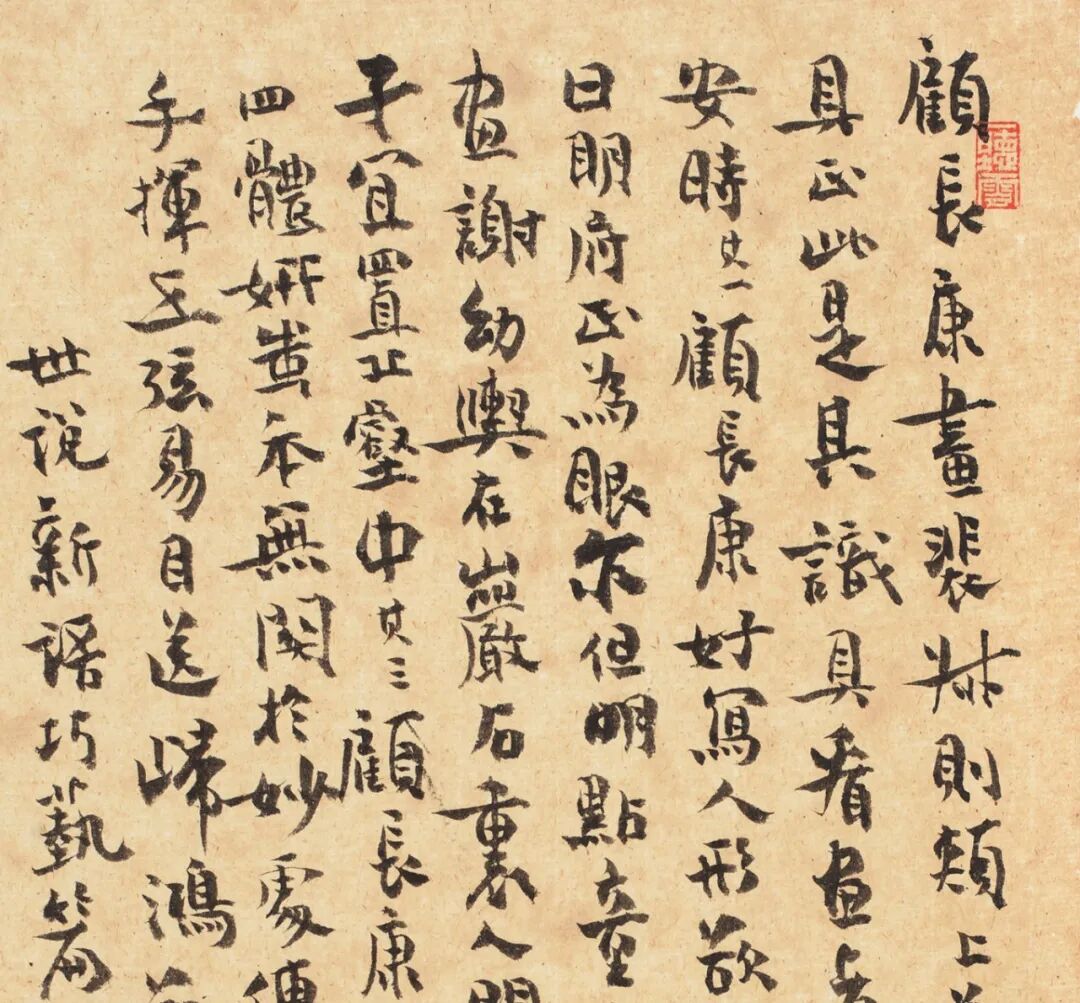 顧長康畫裴叔則頰上
具正此是其識具看畫
安時其一顧長康好寫人形欲
曰明府正為眼尔但明點童
畫謝幼輿在巖石裏人問
子宜置丘壑中其三顧長康
四體妍蚩本無關於妙處傳
手揮五弦易目送歸鴻
世說新語巧藝篇